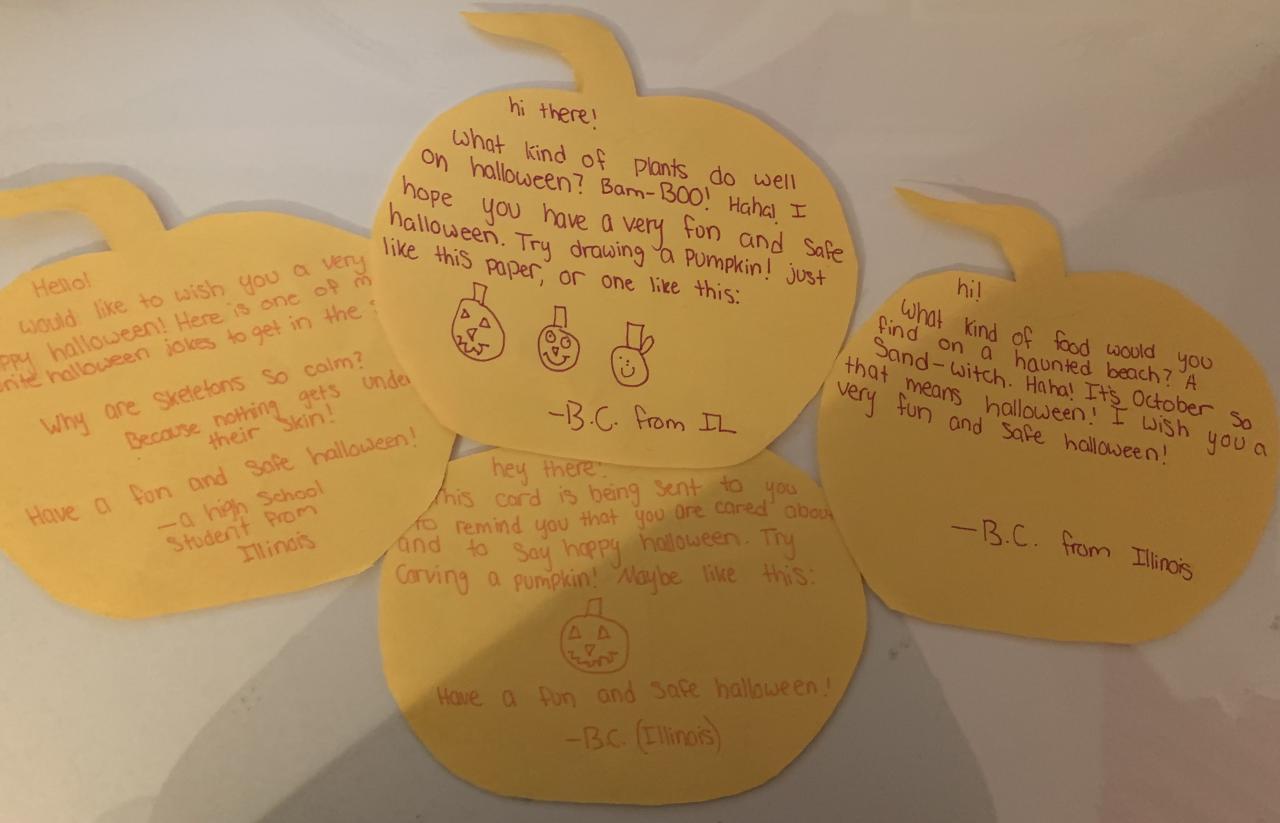 Hello!
would like to wish you a very
ppy halloween! Here is one of m
rite halloween jokes to get in the s
Why are Skeletons so calm?
Because nothing gets under
their skin!
Have a fun and safe halloween!
-a high School
Student from
Illinois
hi there!
What kind of plants do well
on halloween? Bam-BOO! Haha! I
hope you have a very fun and safe
halloween. Try drawing a pumpkin! just
like this paper, or one like this:
-B.C. from IL
hey there!
This card is being sent to you
to remind you that you are cared about
and to say happy halloween. Try
Carving a pumpkin! Maybe like this:
Have a fun and safe halloween!
-B.C. (Illinois)
hi!
What kind of food would you
find on a haunted beach? A
Sand-witch. Haha! It's October so
that means halloween! I wish you a
very fun and safe halloween!
-B.C. from Illinois